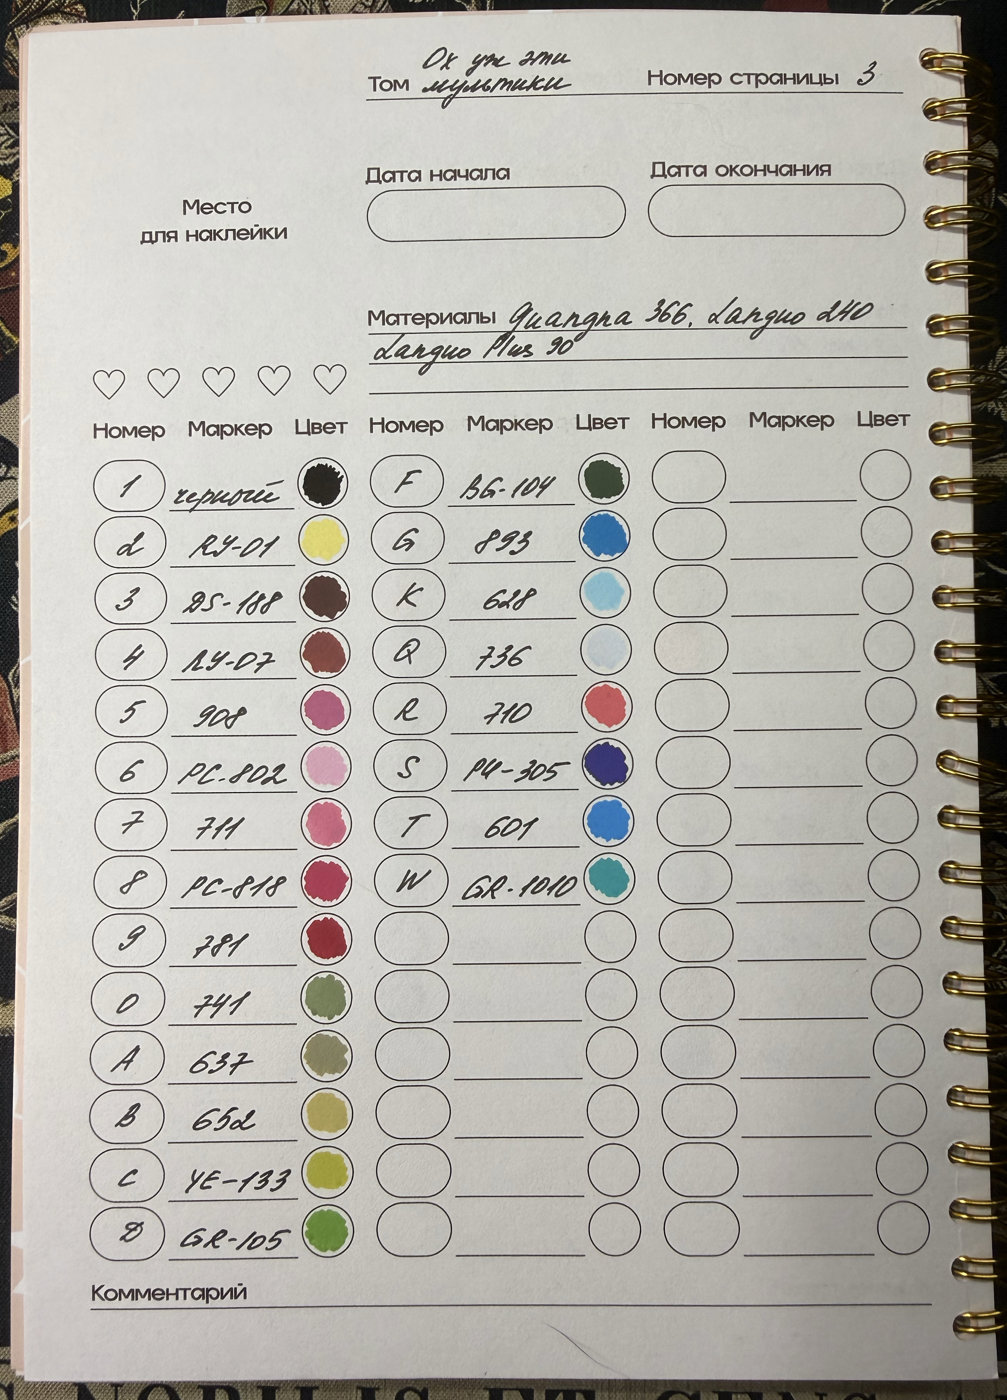 Ох уж эти
Том мультики Номер страницы 3
Дата начала Дата окончания
Место
для наклейки
Материалы Guangna 366, Languo 240
Languo Plus 90
Номер Маркер Цвет Номер Маркер Цвет Номер Маркер Цвет
1 черный F BG-104
2 RY-01 G 893
3 DS-188 K 628
4 RY-07 Q 736
5 908 R 710
6 PC-802 S PU-305
7 711 T 601
8 PC-818 W GR-1010
9 781
0 741
A 637
B 652
C YE-133
D GR-105
Комментарий
NOBILIS ET GENS